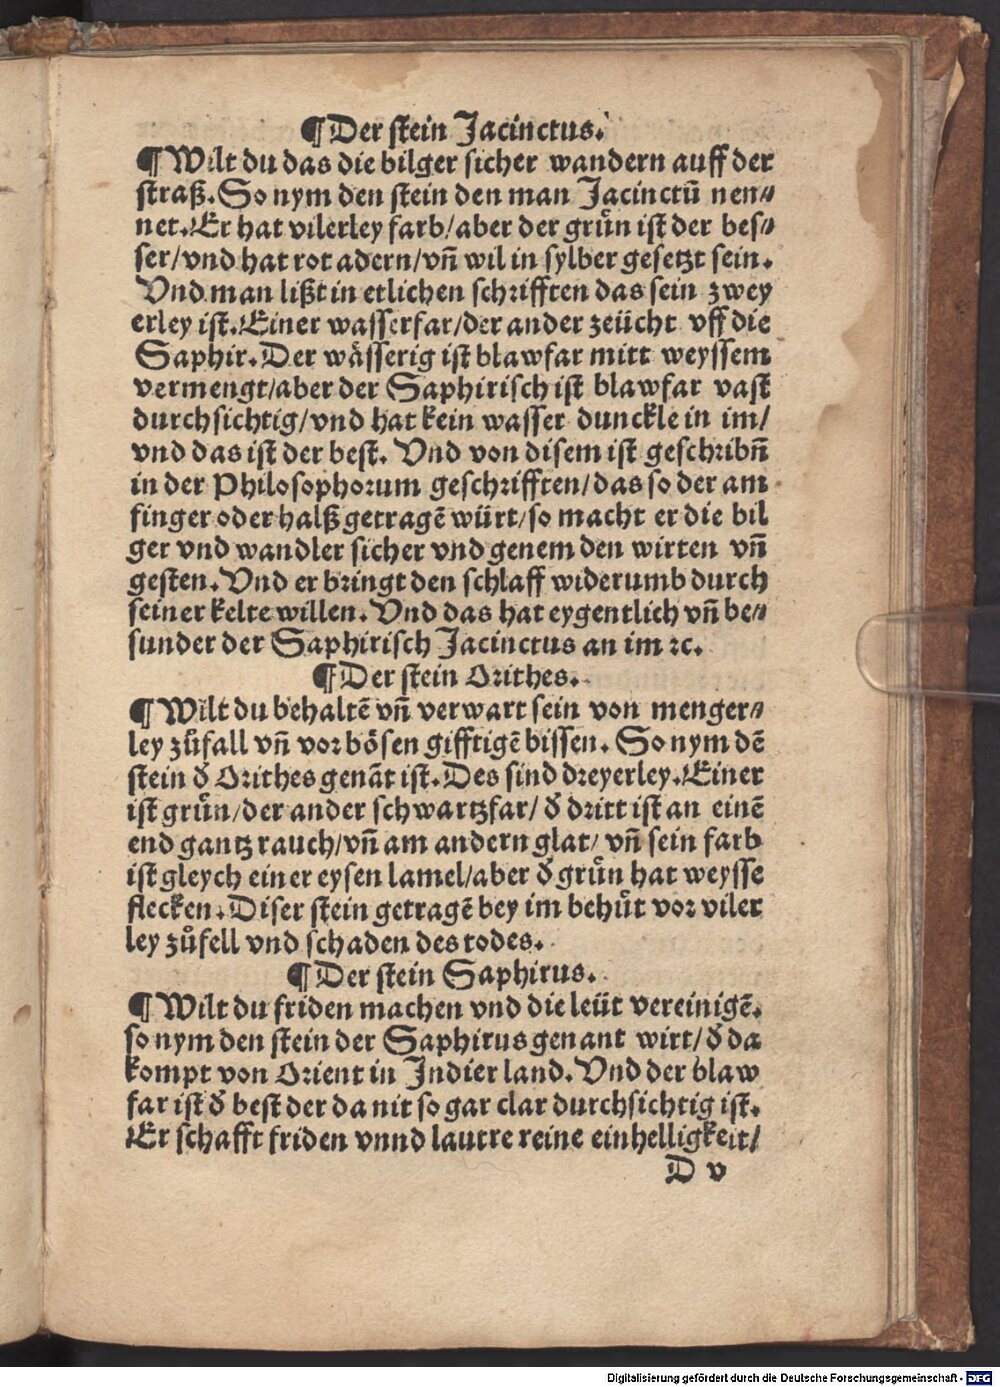 ¶Der stein Jacinctus.
¶Wilt du das die bilger sicher wandern auff der
straß. So nym den stein den man Jacinctū nen⸗
net. Er hat vilerley farb/aber der grůn ist der bes⸗
ser/vnd hat rot adern/vn̄ wil in sylber gesetzt sein.
Vnd man lißt in etlichen schrifften das sein zwey
erley ist. Einer wasserfar/der ander zeücht vff die
Saphir. Der wässerig ist blawfar mitt weyssem
vermengt/aber der Saphirisch ist blawfar vast
durchsichtig/vnd hat kein wasser dunckle in im/
vnd das ist der best. Vnd von disem ist geschribn̄
in der Philosophorum geschrifften/das so der am
finger oder halß getragē würt/so macht er die bil
ger vnd wandler sicher vnd genem den wirten vn̄
gesten. Vnd er bringt den schlaff widerumb durch
seiner kelte willen. Vnd das hat eygentlich vn̄ be⸗
sunder der Saphirisch Jacinctus an im ꝛc.
¶Der stein Orithes.
¶Wilt du behaltē vn̄ verwart sein von menger⸗
ley zůfall vn̄ vor bösen gifftigē bissen. So nym dē
stein ď Orithes genāt ist. Des sind dreyerley. Einer
ist grůn/der ander schwartzfar/ ď dritt ist an einē
end gantz rauch/vn̄ am andern glat/ vn̄ sein farb
ist gleych einer eysen lamel/aber ď grůn hat weysse
flecken. Diser stein getragē bey im behůt vor viler
ley zůfell vnd schaden des todes.
¶Der stein Saphirus.
¶Wilt du friden machen vnd die leüt vereinigē.
so nym den stein der Saphirus genant wirt/ ď da
kompt von Orient in Indier land. Vnd der blaw
far ist ď best der da nit so gar clar durchsichtig ist.
Er schafft friden vnnd lautre reine einhelligkeit/
D v
Digitalisierung gefördert durch die Deutsche Forschungsgemeinschaft - DFG